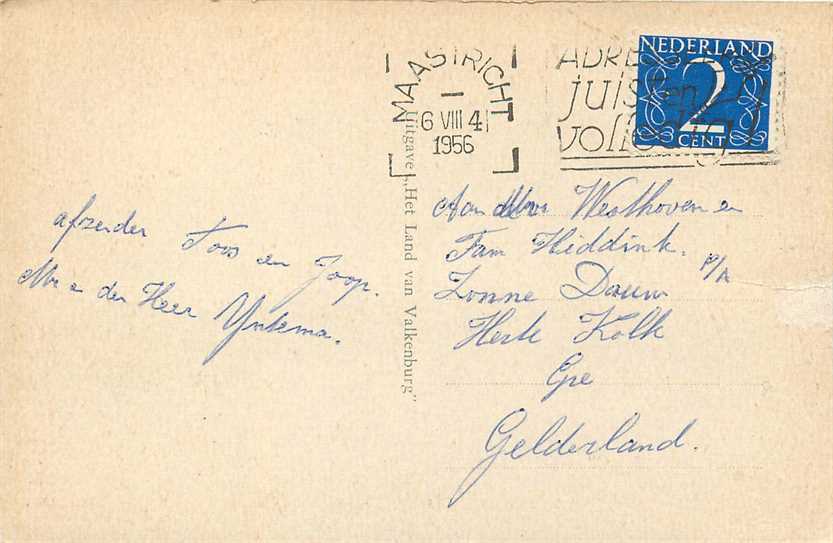 MAASTRICHT
6 VIII 4
1956
ADRE
juist en
volledig
NEDERLAND
2
CENT
Uitgave „Het Land van Valkenburg"
afzender Toos en Joop.
Mr en der Heer Ynkema.
Aan Mvr Westhoven en
Fam Hiddink.
P/A
Zonne Dauw
Herte Kolk
Gelderland.